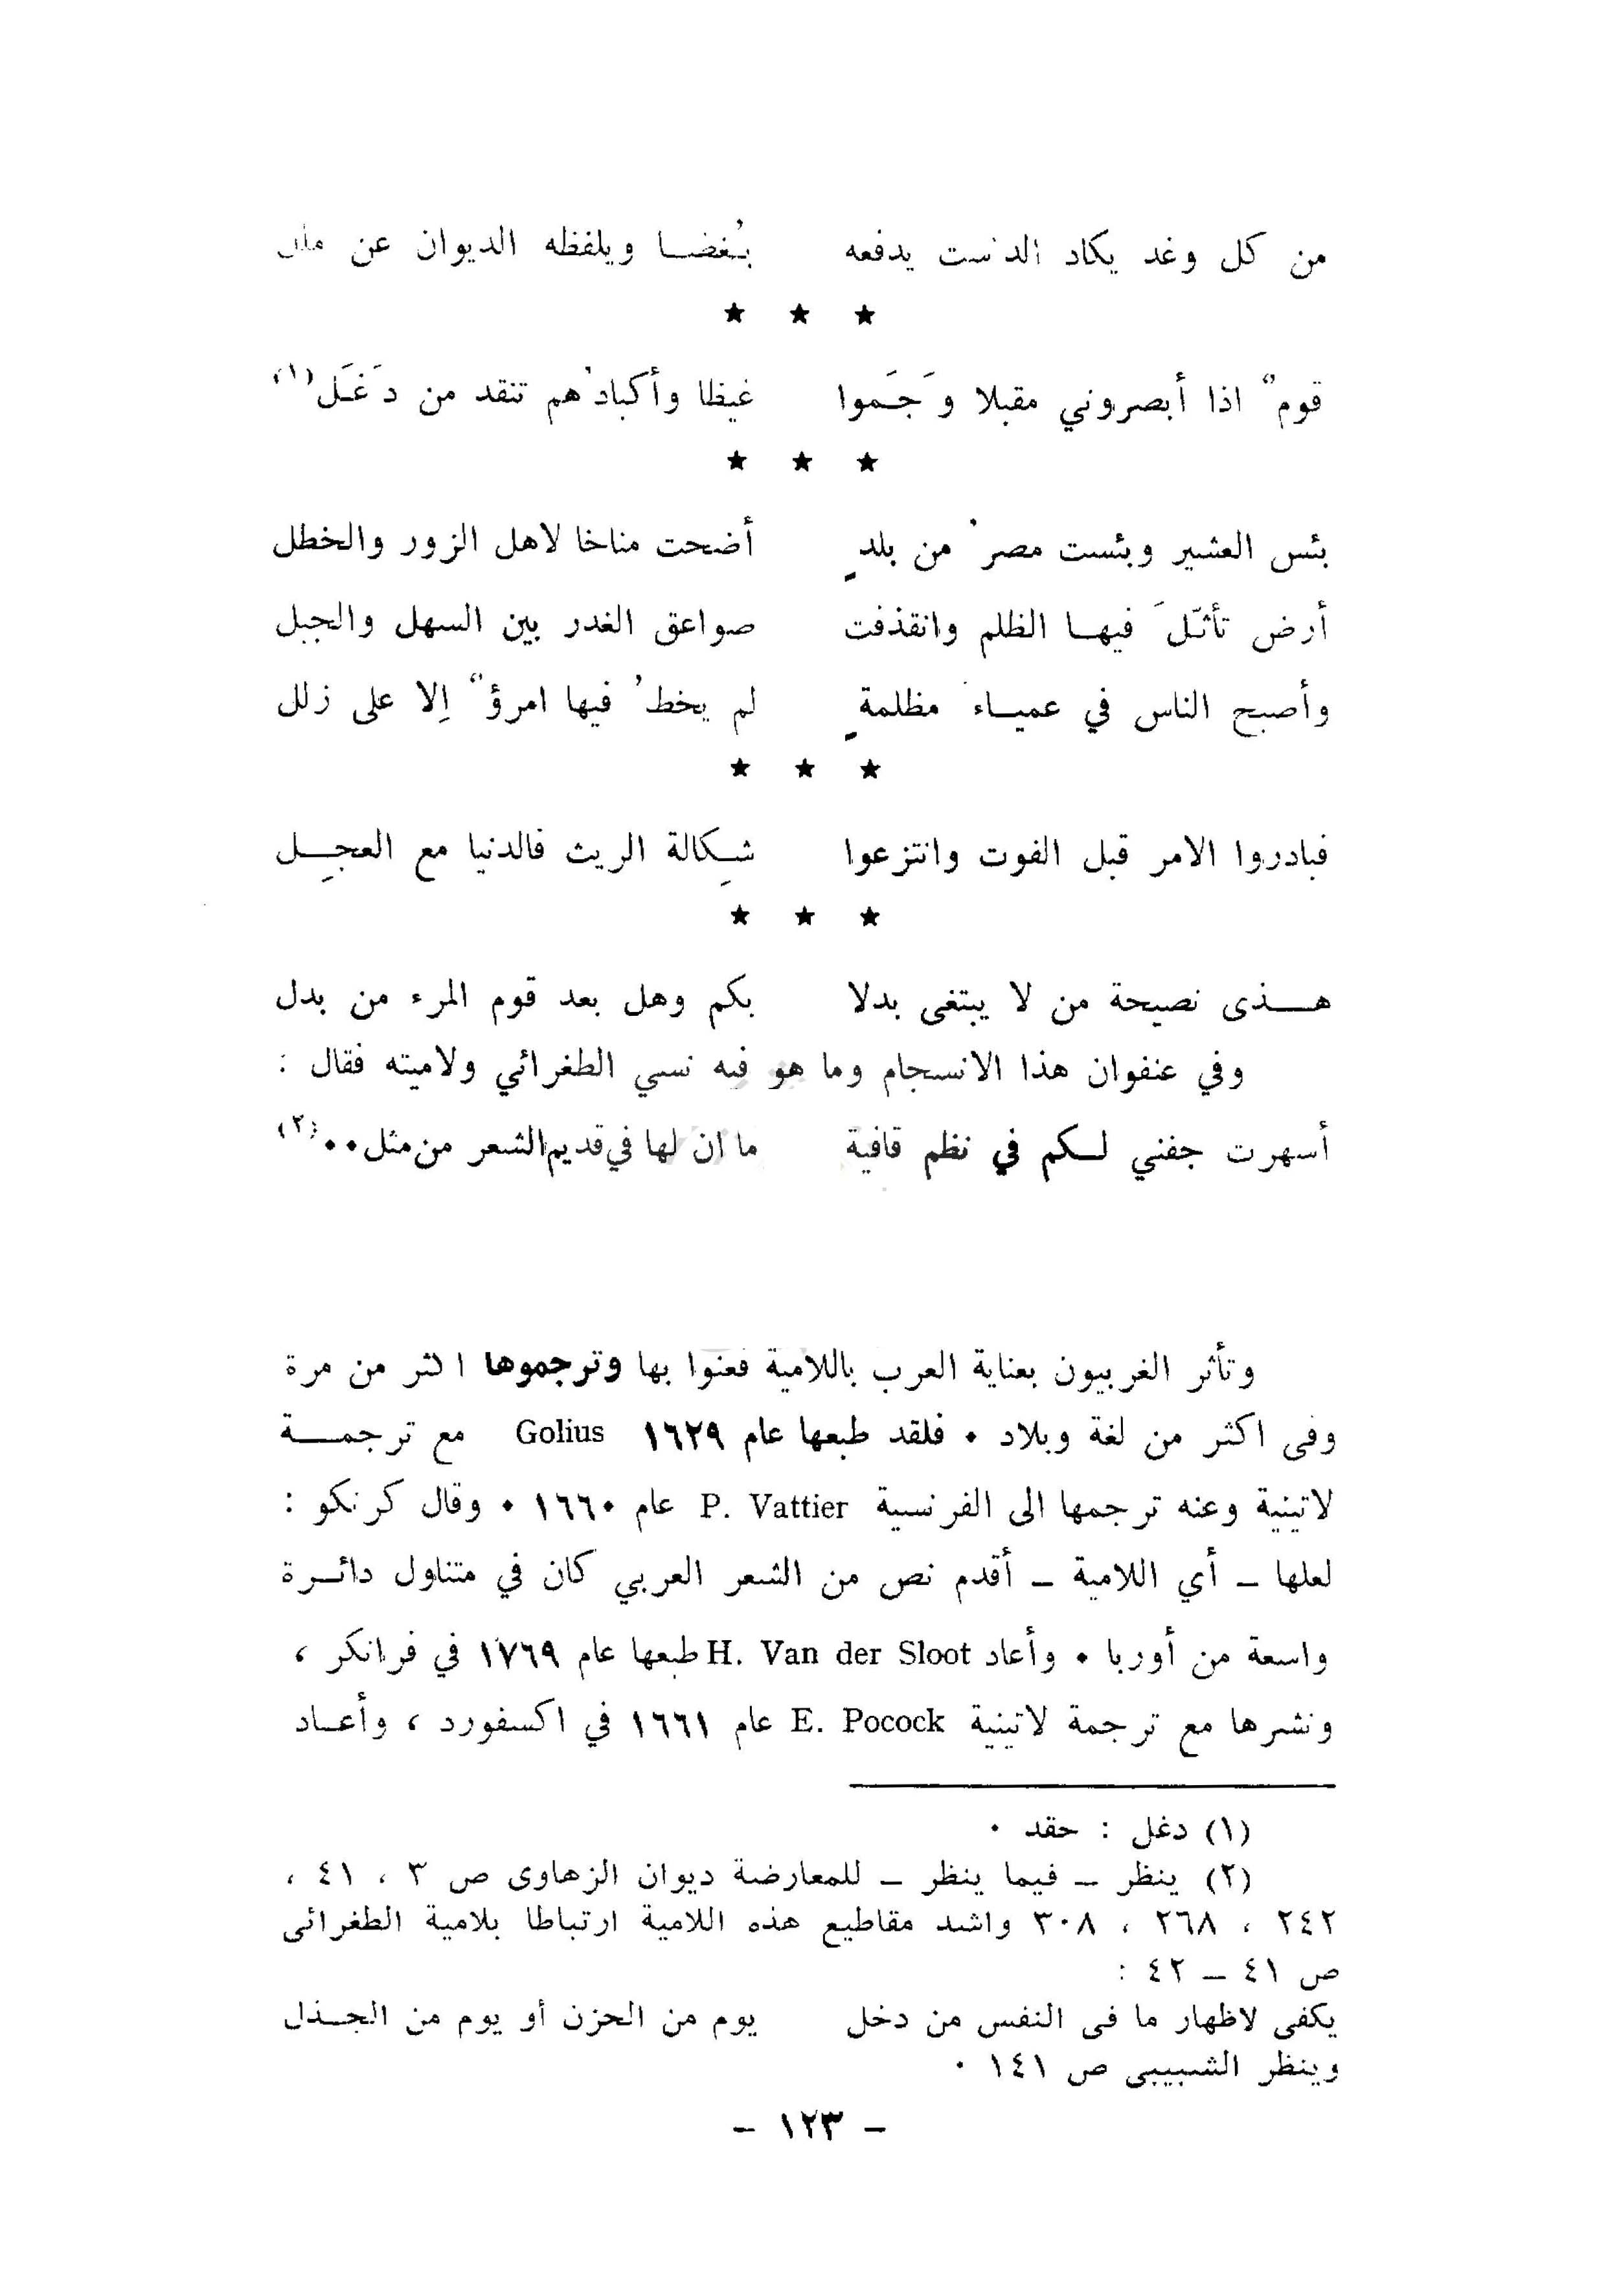 من كل وغد يكاد الدست يدفعه بُغضا ويلفظه الديوان عن ملل
★ ★ ★
قومٌ اذا أبصروني مقبلا وَجَموا غيظا وأكبادُهم تنقد من دَغَل(١)
★ ★ ★
بئس العشير وبئست مصرُ من بلدٍ أضحت مناخا لاهل الزور والخطل
أرض تأثّلَ فيها الظلم وانقذفت صواعق الغدر بين السهل والجبل
وأصبح الناس في عمياءَ مظلمةٍ لم يخطُ فيها امرؤٌ إلا على زلل
★ ★ ★
فبادروا الامر قبل الفوت وانتزعوا شِكالة الريث فالدنيا مع العجِل
★ ★ ★
هذى نصيحة من لا يبتغى بدلا بكم وهل بعد قوم المرء من بدل
وفي عنفوان هذا الانسجام وما هو فيه نسي الطغرائي ولاميته فقال :
أسهرت جفني لكم في نظم قافية ما ان لها في قديم الشعر من مثل٠٠(٢)
وتأثر الغربيون بعناية العرب باللامية فعنوا بها وترجموها اكثر من مرة
وفى اكثر من لغة وبلاد ٠ فلقد طبعها عام ١٦٢٩ Golius مع ترجمة
لاتينية وعنه ترجمها الى الفرنسية P. Vattier عام ١٦٦٠ ٠ وقال كرنكو :
لعلها ـ أي اللامية ـ أقدم نص من الشعر العربي كان في متناول دائرة
واسعة من أوربا ٠ وأعاد H. Van der Sloot طبعها عام ١٧٦٩ في فرانكر ،
ونشرها مع ترجمة لاتينية E. Pocock عام ١٦٦١ في اكسفورد ، وأعاد
(١) دغل : حقد ٠
(٢) ينظر ـ فيما ينظر ـ للمعارضة ديوان الزهاوى ص ٣ ، ٤١ ،
٢٤٢ ، ٢٦٨ ، ٣٠٨ واشد مقاطيع هذه اللامية ارتباطا بلامية الطغرائى
ص ٤١ ـ ٤٢ :
يكفى لاظهار ما فى النفس من دخل يوم من الحزن أو يوم من الجذل
وينظر الشبيبى ص ١٤١ ٠
- ١٢٣ -